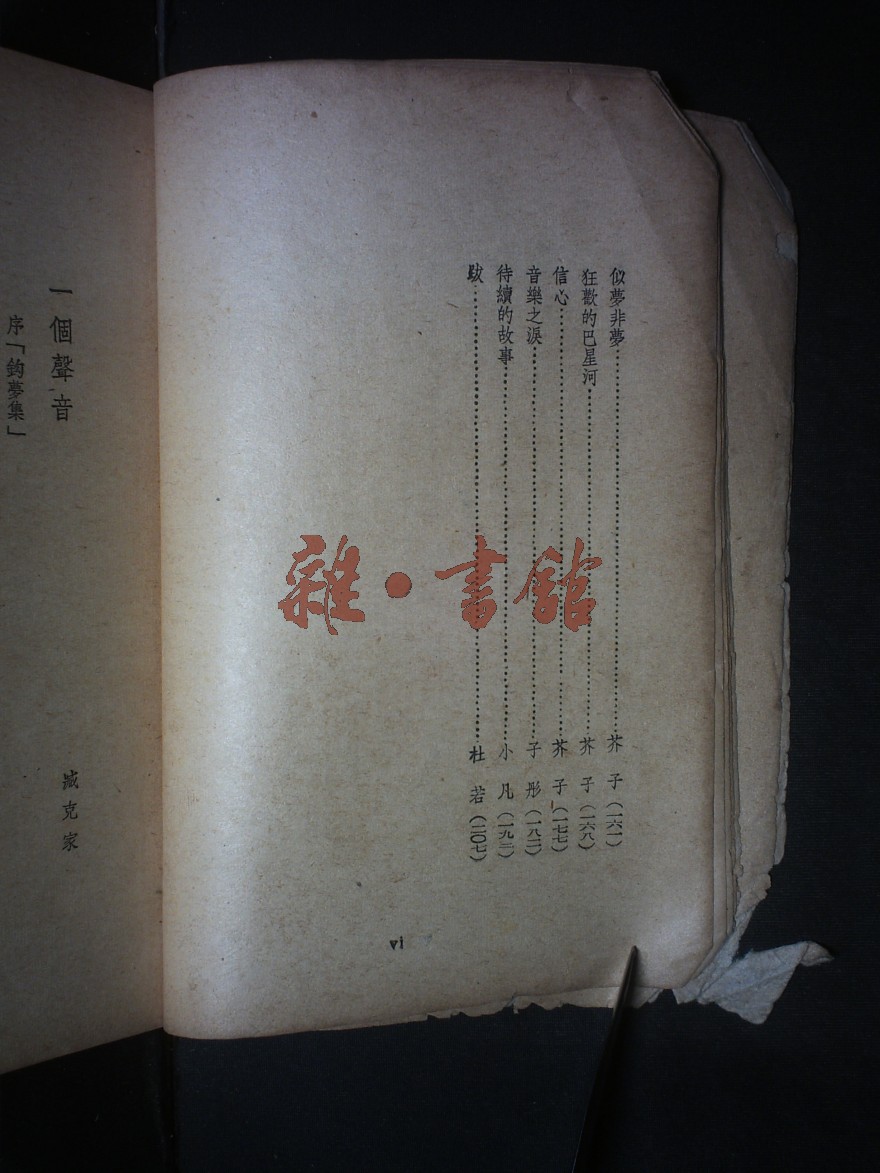 似夢非夢……芥子(一六一)
狂歡的巴星河……芥子(一六八)
信心……芥子(一七七)
音樂之淚……子彤(一八二)
待續的故事……小凡(一九二)
跋……杜若(二〇七)
vi
一個聲音
序「鈎夢集」
臧克家
雜·書館